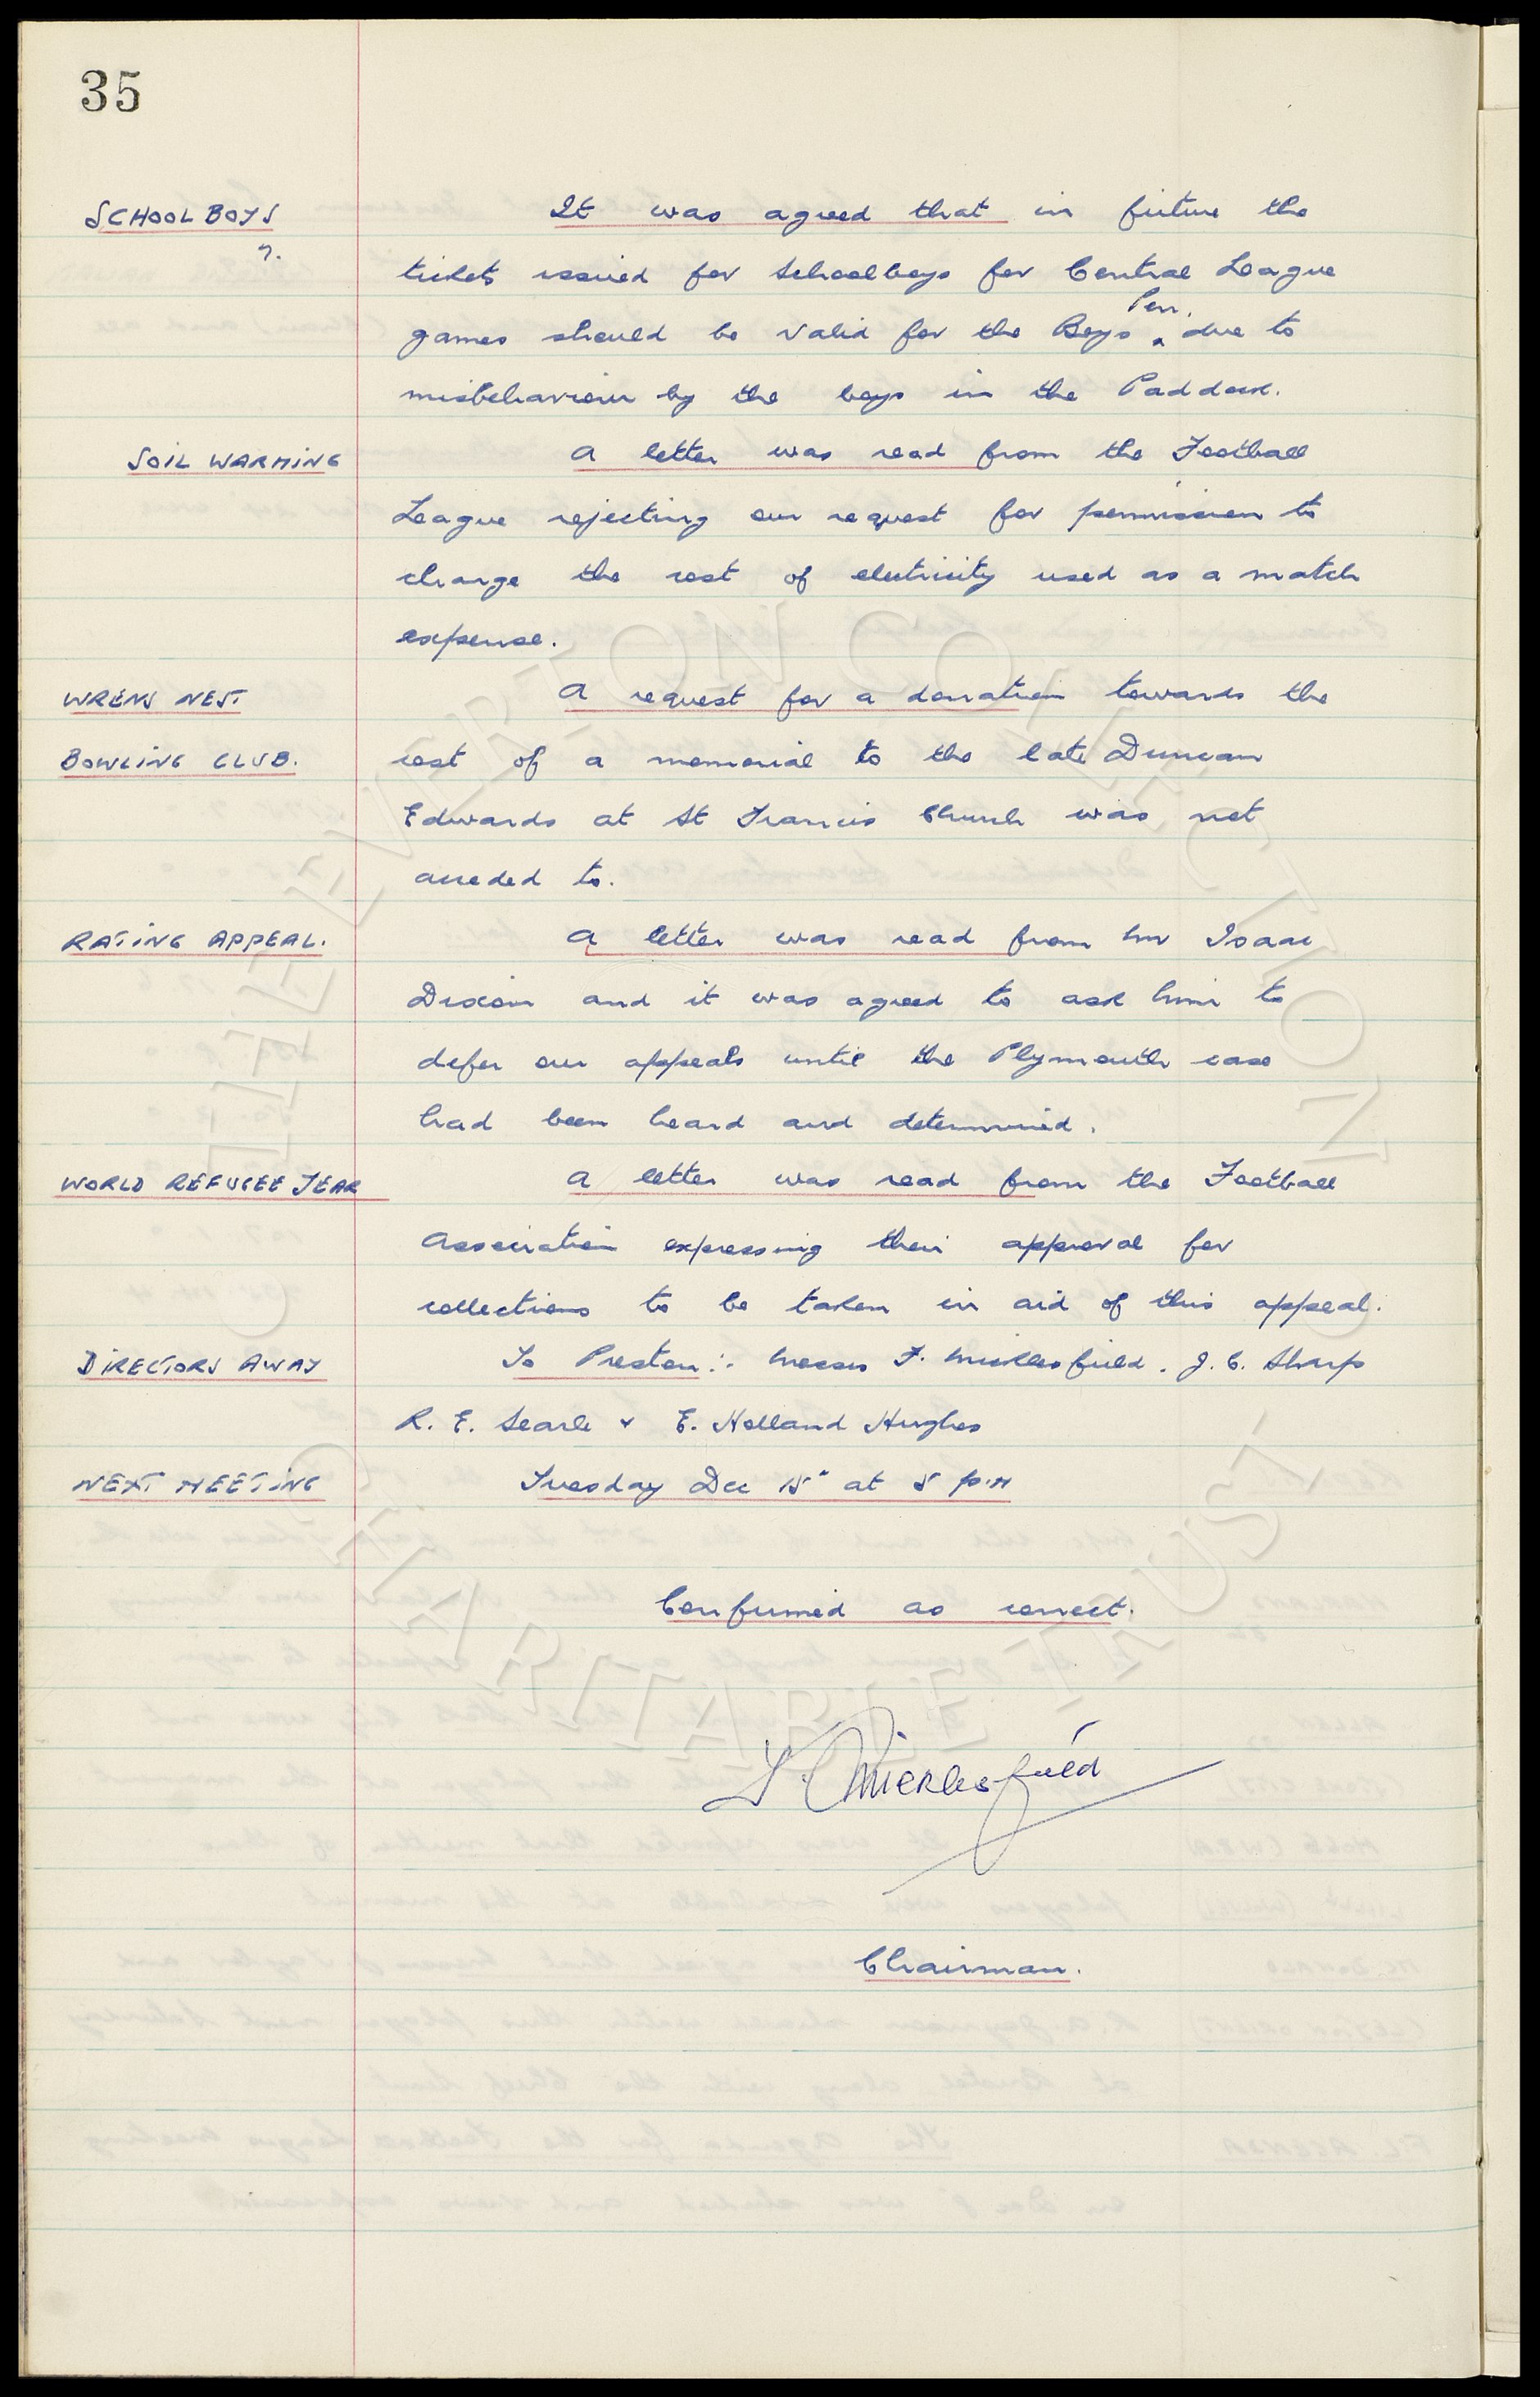 35
SCHOOL BOYS
?.
It was agreed that in future the
tickets issued for Schoolboys for Central League
games should be valid for the Boys ^ Pen. due to
misbehaviour by the boys in the Paddock.
SOIL WARMING
A letter was read from the Football
League rejecting our request for permission to
charge the cost of electricity used as a match
expense.
WRENS NEST
BOWLING CLUB.
A request for a donation towards the
cost of a memorial to the late Duncan
Edwards at St Francis Church was not
acceded to.
RATING APPEAL.
A letter was read from Mr Isaac
Dixon and it was agreed to ask him to
defer our appeals until the Plymouth case
had been heard and determined.
WORLD REFUGEE YEAR
A letter was read from the Football
Association expressing their approval for
collections to be taken in aid of this appeal.
DIRECTORS AWAY
To Preston :- Messrs F. Micklesfield. J. C. Sharp
R. E. Searle & E. Holland Hughes
NEXT MEETING
Tuesday Dec 15" at 5 p.m
Confirmed as correct.
F. Micklesfield
Chairman.
EVERTON COLLECTION
CHARITABLE TRUST